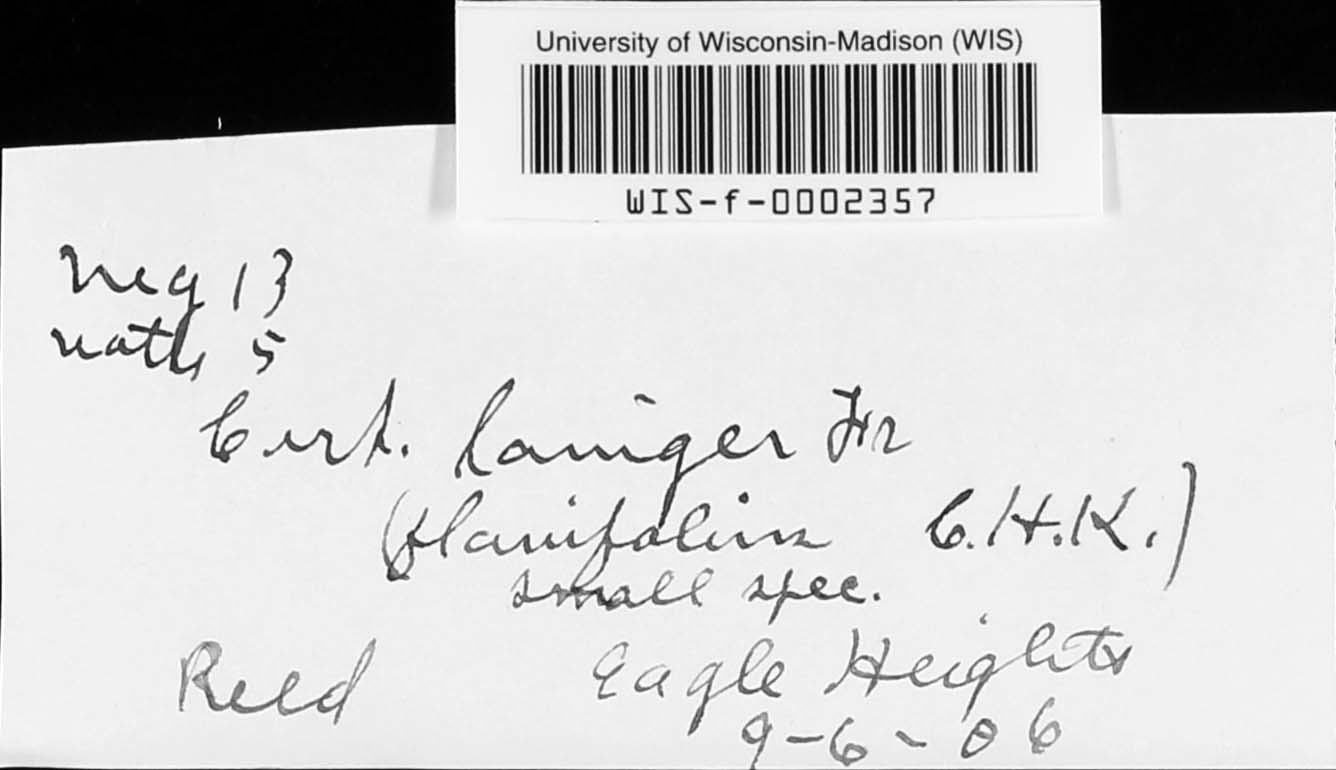 University of Wisconsin-Madison (WIS)
WIS-f-0002357
neg 13
5
Cort. laniger Fr
(planifolius C.H.K.)
small spec.
Reed Eagle Heights
9-6-06